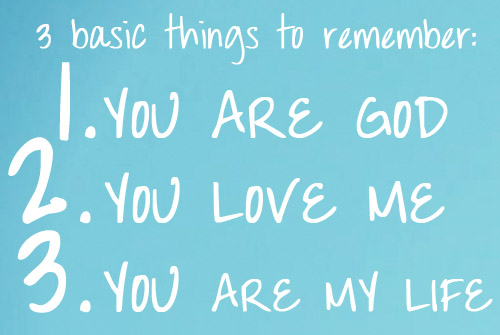 3 basic things to remember:
1. YOU ARE GOD
2. YOU LOVE ME
3. YOU ARE MY LIFE